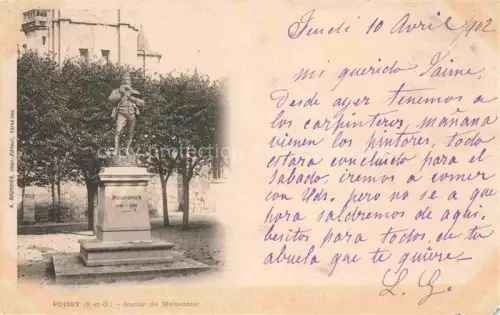 Jeudi 10 Avril 1902
mi querido Jaime,
Desde ayer tenemos a
los carpinteros, mañana
vienen los pintores, todo
estara concluido para el
sabado. iremos a comer
con Uds. pero no se a que
hora saldremos de aqui,
besitos para todos, de tu
abuela que te quiere
L. G.
A. BOURDIER, Impr.-Éditeur, Versailles
POISSY (S.-et-O.) — Statue de Meissonier
MEISSONIER